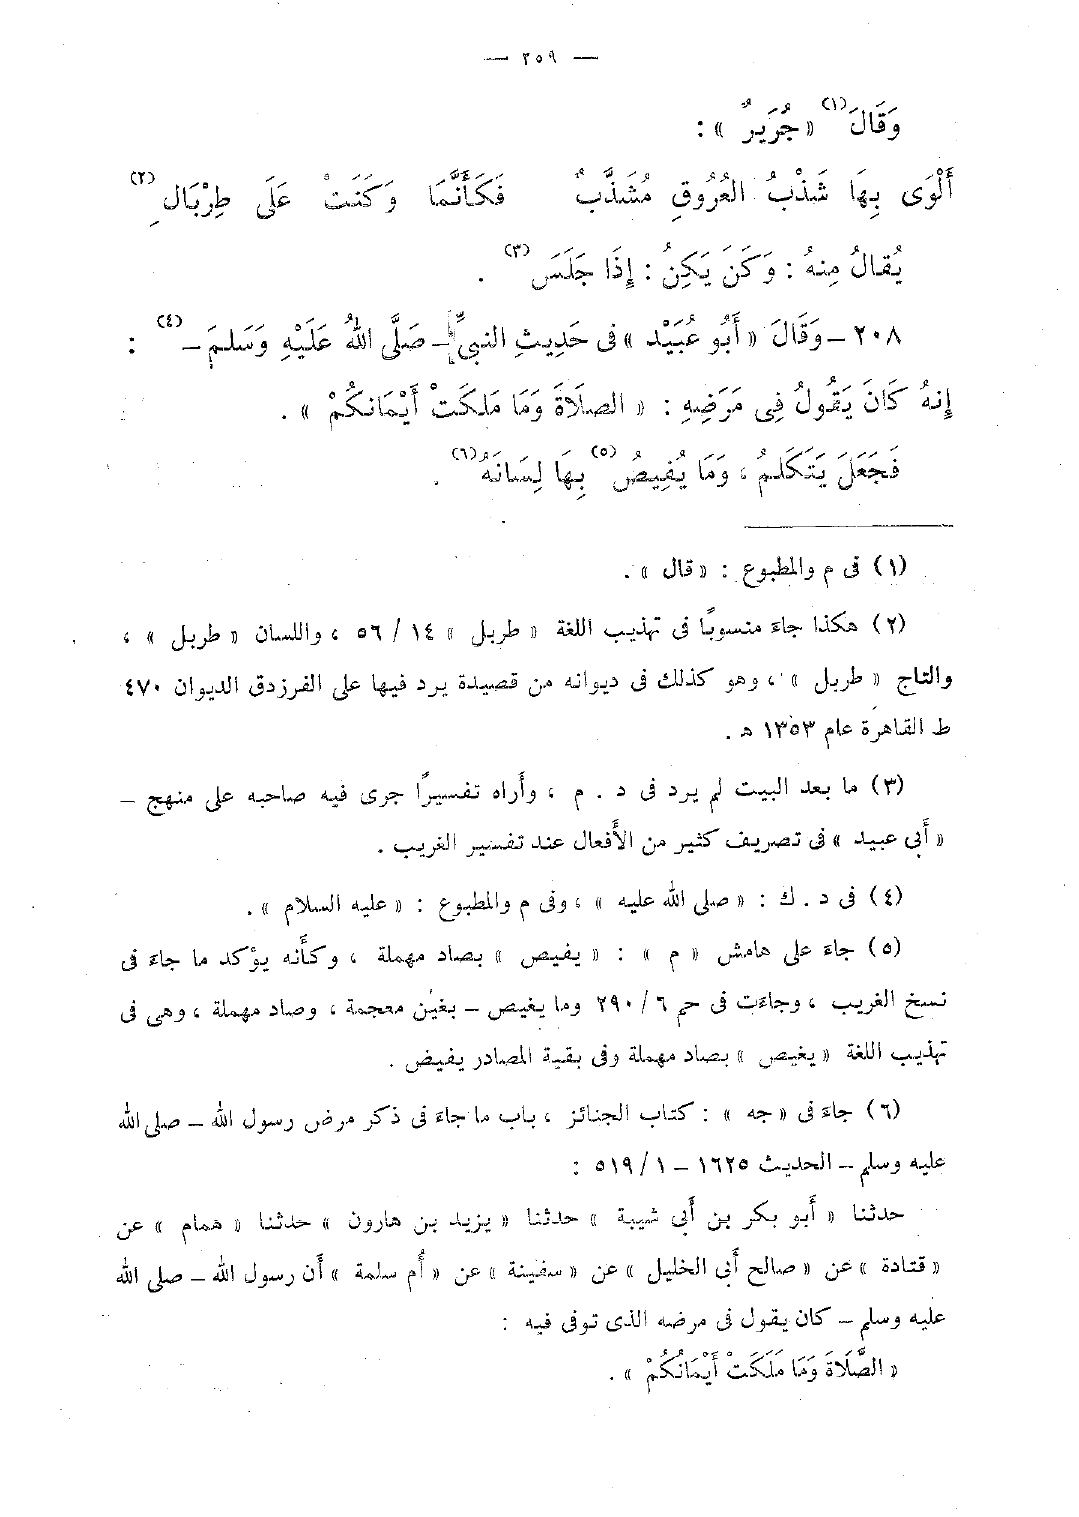 — ٢٥٩ —
وَقَالَ (١) « جُرَيرٌ » :
أَلْوَى بِهَا شَذْبُ العُرُوقِ مُشَذَّبٌ فَكَأَنَّمَا وَكَنَتْ عَلَى طِرْبَالِ (٢)
يُقالُ مِنهُ : وَكَنَ يَكِنُ : إِذَا جَلَسَ (٣) .
٢٠٨ – وَقَالَ « أَبُو عُبَيْد » فى حَدِيثِ النبىِّ – صَلَّى اللهُ عَلَيْهِ وَسَلمَ – (٤) :
إِنهُ كَانَ يَقُولُ فِى مَرَضِهِ : « الصلَاةَ وَمَا مَلكَتْ أَيْمَانكُمْ » .
فَجَعَلَ يَتَكَلمُ ، وَمَا يُفِيصُ (٥) بِهَا لِسَانَهُ (٦) .
(١) فى م والمطبوع : « قال » .
(٢) هكذا جاء منسوبًا فى تهذيب اللغة « طربل » ١٤ / ٥٦ ، واللسان « طربل » ،
والتاج « طربل » ، وهو كذلك فى ديوانه من قصيدة يرد فيها على الفرزدق الديوان ٤٧٠
ط القاهرة عام ١٣٥٣ ه .
(٣) ما بعد البيت لم يرد فى د . م ، وأراه تفسيرًا جرى فيه صاحبه على منهج –
« أبى عبيد » فى تصريف كثير من الأَفعال عند تفسير الغريب .
(٤) فى د . ك : « صلى الله عليه » ، وفى م والمطبوع : « عليه السلام » .
(٥) جاء على هامش « م » : « يفيص » بصاد مهملة ، وكأَنه يؤكد ما جاء فى
نسخ الغريب ، وجاءت فى حم ٦ / ٢٩٠ وما يغيص – بغين معجمة ، وصاد مهملة ، وهى فى
تهذيب اللغة « يغيص » بصاد مهملة وفى بقية المصادر يفيض .
(٦) جاء فى « جه » : كتاب الجنائز ، باب ما جاء فى ذكر مرض رسول الله – صلى الله
عليه وسلم – الحديث ١٦٢٥ – ١ / ٥١٩ :
حدثنا « أَبو بكر بن أَبى شيبة » حدثنا « يزيد بن هارون » حدثنا « همام » عن
« قتادة » عن « صالح أَبى الخليل » عن « سفينة » عن « أُم سلمة » أَن رسول الله – صلى الله
عليه وسلم – كان يقول فى مرضه الذى توفى فيه :
« الصَّلَاةَ وَمَا مَلَكَتْ أَيْمَانُكُمْ » .